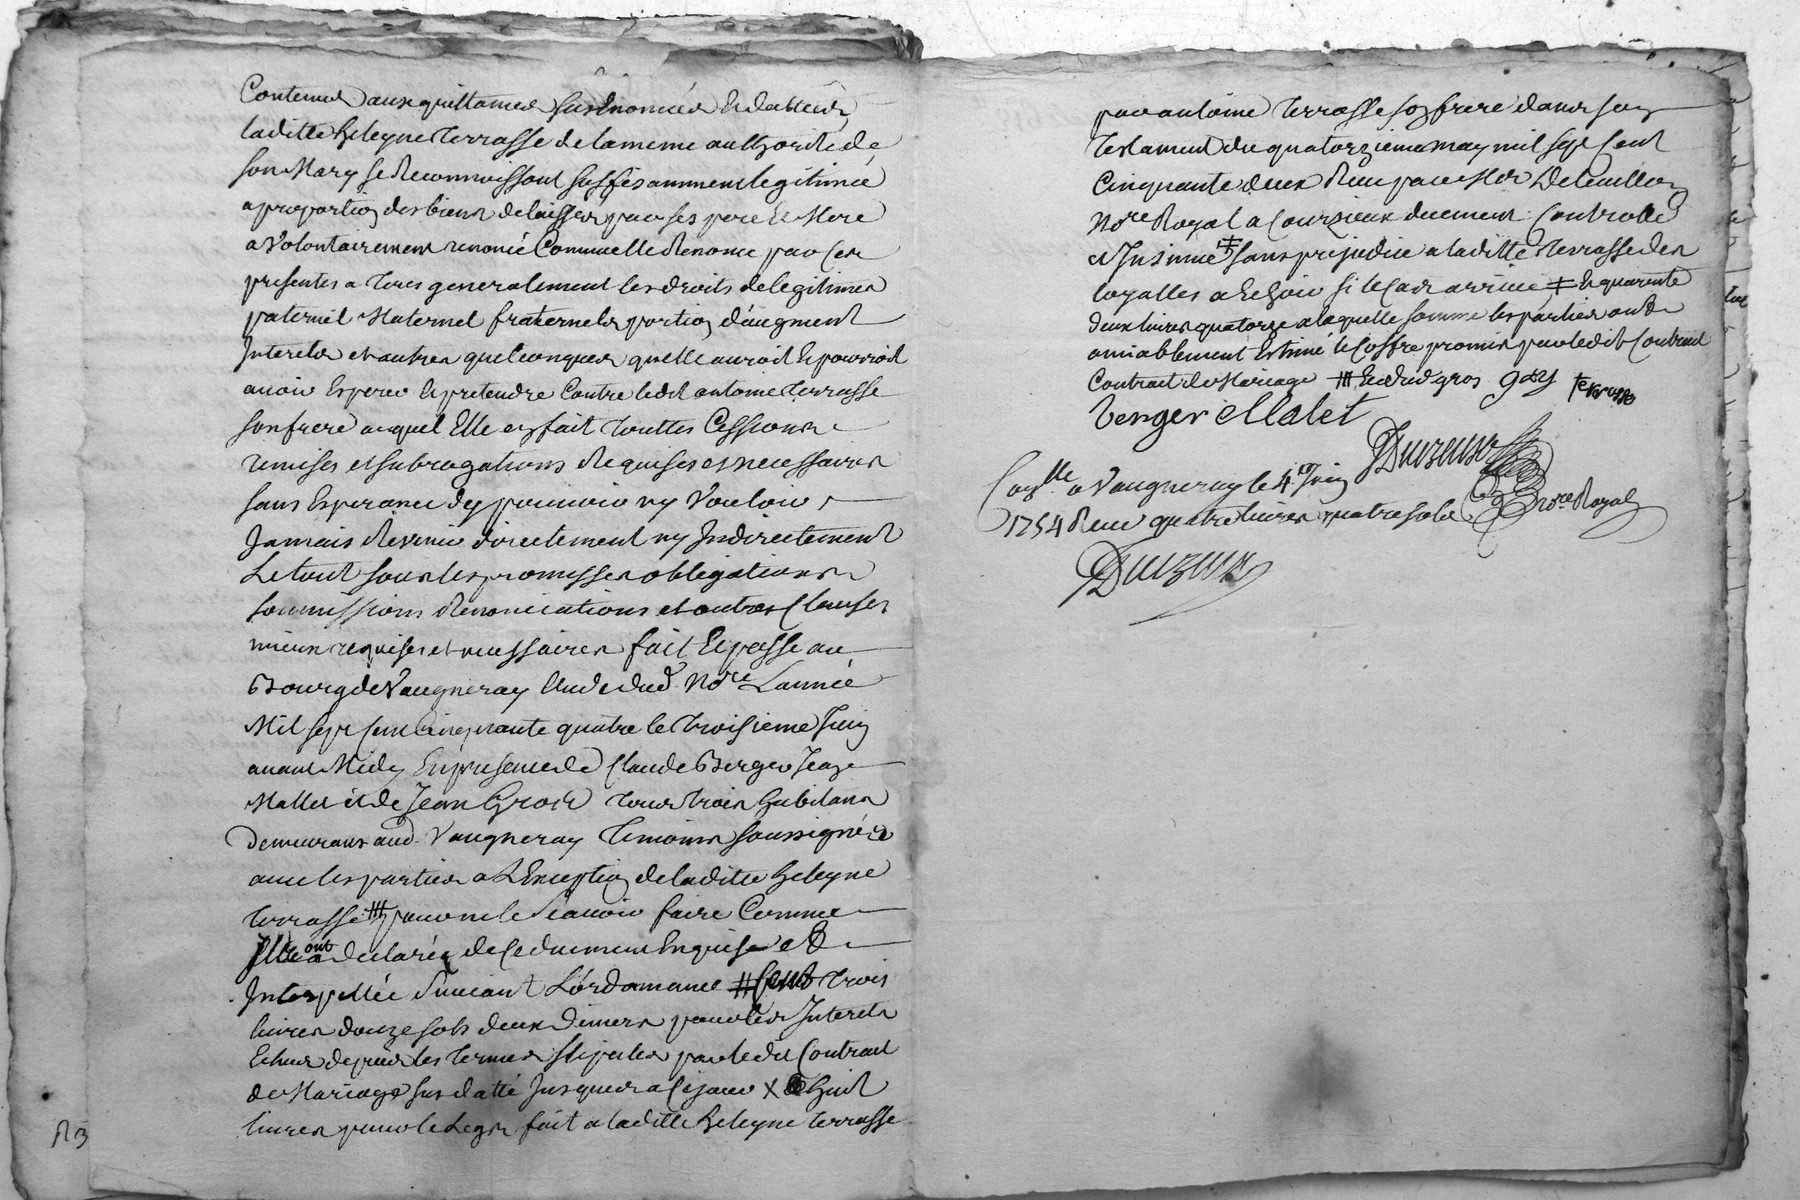 Contenus aux quittances susenoncées & dattées
laditte heleyne terrasse de la meme authorité de
son Mary se Reconnoissant suffisamment legitimée
a proportion des biens delaisser par ses pere Et Mere
a Volontairement renoncé Comme elle Renonce par Ces
presentes a tous generalement les droits de legitimes
paternel Maternel fraternels portion d'augment
Interets et autres quelconques quelle auroit Et pourroit
avoir Esperer Et pretendre Contre ledit antoine terrasse
son frere auquel Elle en fait touttes Cessions
remises et subrogations Requises et necessaires
sans Esperance dy pouvoir ny Vouloir
Jamais Revenir directement ny Indirectement
Le tout sous les promisses obligations
soumissions Renonciations et autres Clauses
mieux requises et necessaires fait Et passé au
Bourg de Vaugneray Etude dud nore L'année
Mil sept Cent Cinquante quatre le troisieme Juin
avant Midy En presence de Claude Berger Jean
Mallet et de Jean Gros tous trois habitans
Demeurans aud Vaugneray temoins soussignés
avec les parties a L'Exception de laditte heleyne
terrasse ⧻ pour ne le scavoir faire Comme
Ils ont declaré de Ce duement Enquise &
Interpellée suivant L'ordonnance # Cent trois
livres douze sols deux deniers pour les Interets
Echus depuis les termes stipulés par ledit Contrat
de Mariage sus datté Jusques a Ce jour X huit
livres pour le Legs fait a laditte heleyne terrasse
par antoine terrasse son frere dans son
testament du quatorzieme may mil sept Cent
Cinquante deux Reçu par Me
Nore Royal a Courzieux duement Controllé
& Insinué ‡ sans prejudice a laditte terrasse des
loyalles a Echoir si le Cas arrive ‡ Et quarente
deux livres quatorze a laquelle somme les parties ont
amiablement Estimé le Coffre promis par ledit Contrat
Contract de Mariage ⧻ Et dud gros
terrasse
Berger Mallet
Conlle a Vaugneray le 4e Juin
1754 Reçu quatre livres quatre sols
nore Royal